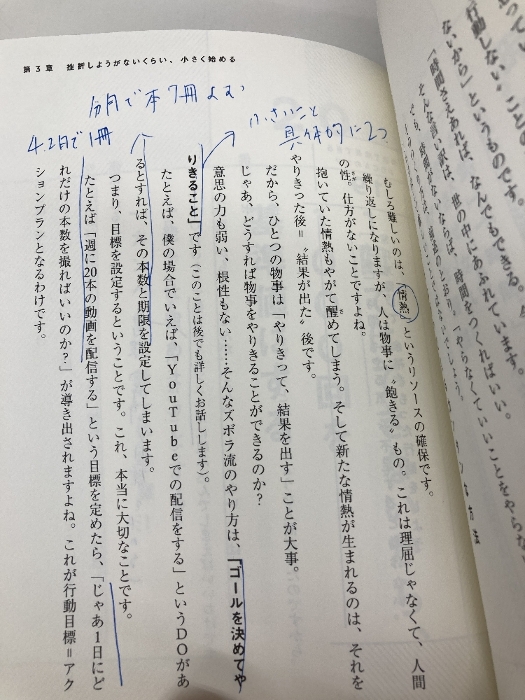 第3章　挫折しようがないくらい、小さく始める
行動しない」ことの
ないから」というものです。
「時間さえあれば、なんでもできる。
そんな言い訳は、世の中にあふれています。
時間をつくればいい。
むしろ難しいのは、情熱というリソースの確保です。
繰り返しになりますが、人は物事に〝飽きる〟もの。これは理屈じゃなくて、人間
の性。仕方がないことですよね。
抱いていた情熱もやがて醒めてしまう。そして新たな情熱が生まれるのは、それを
やりきった後＝〝結果が出た〟後です。
だから、ひとつの物事は「やりきって、結果を出す」ことが大事。
じゃあ、どうすれば物事をやりきることができるのか？
意思の力も弱い、根性もない……そんなズボラ流のやり方は、「ゴールを決めてや
りきること」です（このことは後でも詳しくお話しします）。
たとえば、僕の場合でいえば、「YouTubeでの配信をする」というDOがあ
るとすれば、その本数と期限を設定してしまいます。
つまり、目標を設定するということです。これ、本当に大切なことです。
たとえば「週に20本の動画を配信する」という目標を定めたら、「じゃあ1日にど
れだけの本数を撮ればいいのか？」が導き出されますよね。これが行動目標＝アク
ションプランとなるわけです。
小さいこと
具体的に2つ
月で本7冊よむ
4.2日で1冊